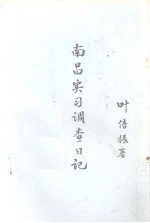 南昌实习调查日记
叶倍振著